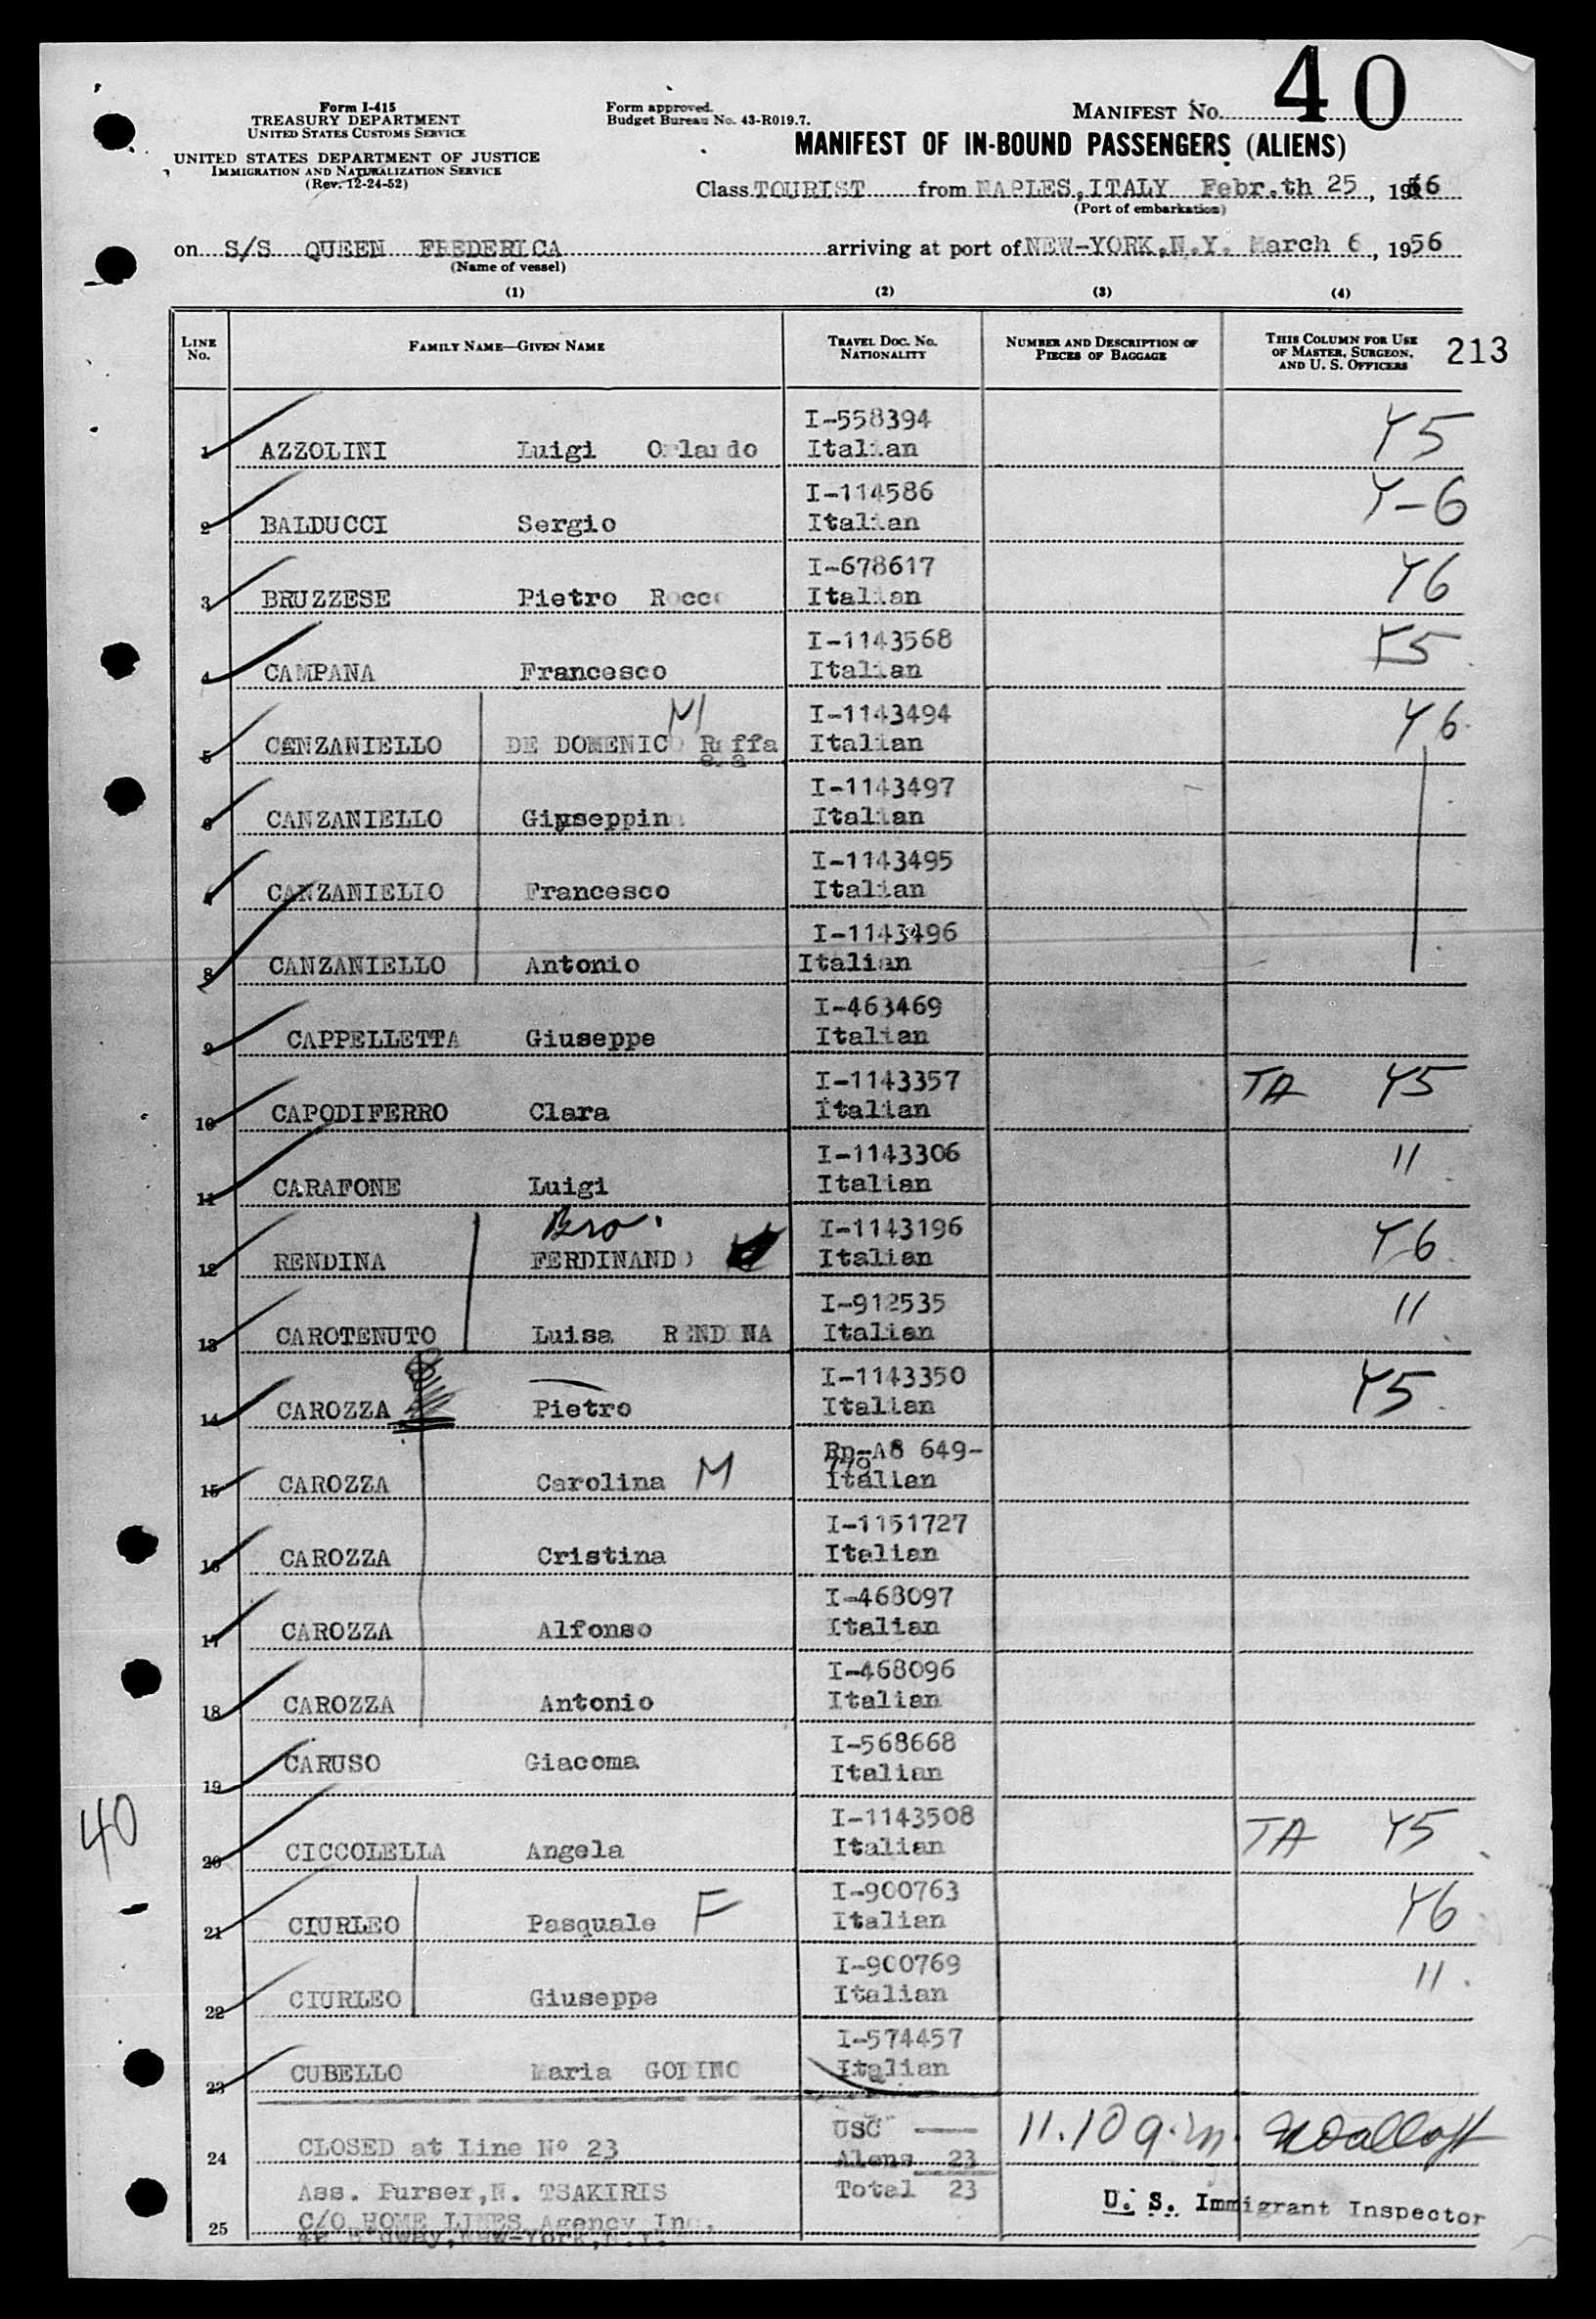 40
Form I-415
TREASURY DEPARTMENT
UNITED STATES CUSTOMS SERVICE
UNITED STATES DEPARTMENT OF JUSTICE
IMMIGRATION AND NATURALIZATION SERVICE
(Rev. 12-24-52)
Form approved.
Budget Bureau No. 43-R019.7.
MANIFEST NO.
MANIFEST OF IN-BOUND PASSENGERS (ALIENS)
Class TOURIST from NAPLES, ITALY Febr.th 25, 1956
(Port of embarkation)
on S/S QUEEN FREDERICA arriving at port of NEW-YORK, N.Y. March 6, 1956
(Name of vessel)
(1) (2) (3) (4)
LINE No. FAMILY NAME—GIVEN NAME TRAVEL DOC. NO. NATIONALITY NUMBER AND DESCRIPTION OF PIECES OF BAGGAGE THIS COLUMN FOR USE OF MASTER, SURGEON, AND U. S. OFFICERS 213
I-558394 Y5
1 AZZOLINI Luigi Orlando Italian
I-114586 Y-6
2 BALDUCCI Sergio Italian
I-678617 Y6
3 BRUZZESE Pietro Rocco Italian
I-1143568 Y5
4 CAMPANA Francesco Italian
M I-1143494 Y6
5 CANZANIELLO DE DOMENICO Raffa Italian
I-1143497
6 CANZANIELLO Giuseppina Italian
I-1143495
7 CANZANIELLO Francesco Italian
I-1143496
8 CANZANIELLO Antonio Italian
I-463469
9 CAPPELLETTA Giuseppe Italian
I-1143357 TA Y5
10 CAPODIFERRO Clara Italian
I-1143306 11
11 CARAFONE Luigi Italian
Bro. I-1143196 Y6
12 RENDINA FERDINANDO Italian
I-912535 11
13 CAROTENUTO Luisa RENDINA Italian
I-1143350 Y5
14 CAROZZA Pietro Italian
Rp-A8 649-
779
15 CAROZZA Carolina M Italian
I-1151727
16 CAROZZA Cristina Italian
I-468097
17 CAROZZA Alfonso Italian
I-468096
18 CAROZZA Antonio Italian
I-568668
19 CARUSO Giacoma Italian
I-1143508 TA Y5
20 CICCOLELLA Angela Italian
I-900763 Y6
21 CIURLEO Pasquale F Italian
I-900769 11
22 CIURLEO Giuseppe Italian
I-574457
23 CUBELLO Maria GODINO Italian
USC — 11.10 a.m.
24 CLOSED at Line Nº 23 Alens 23
Ass. Purser, N. TSAKIRIS Total 23
U. S. Immigrant Inspector
25 C/O HOME LINES Agency Inc.
40